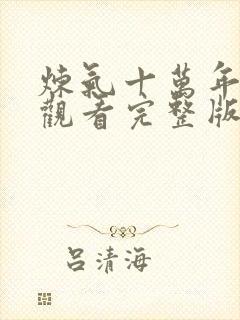 煉氣十萬年
觀看完整版
呂清海